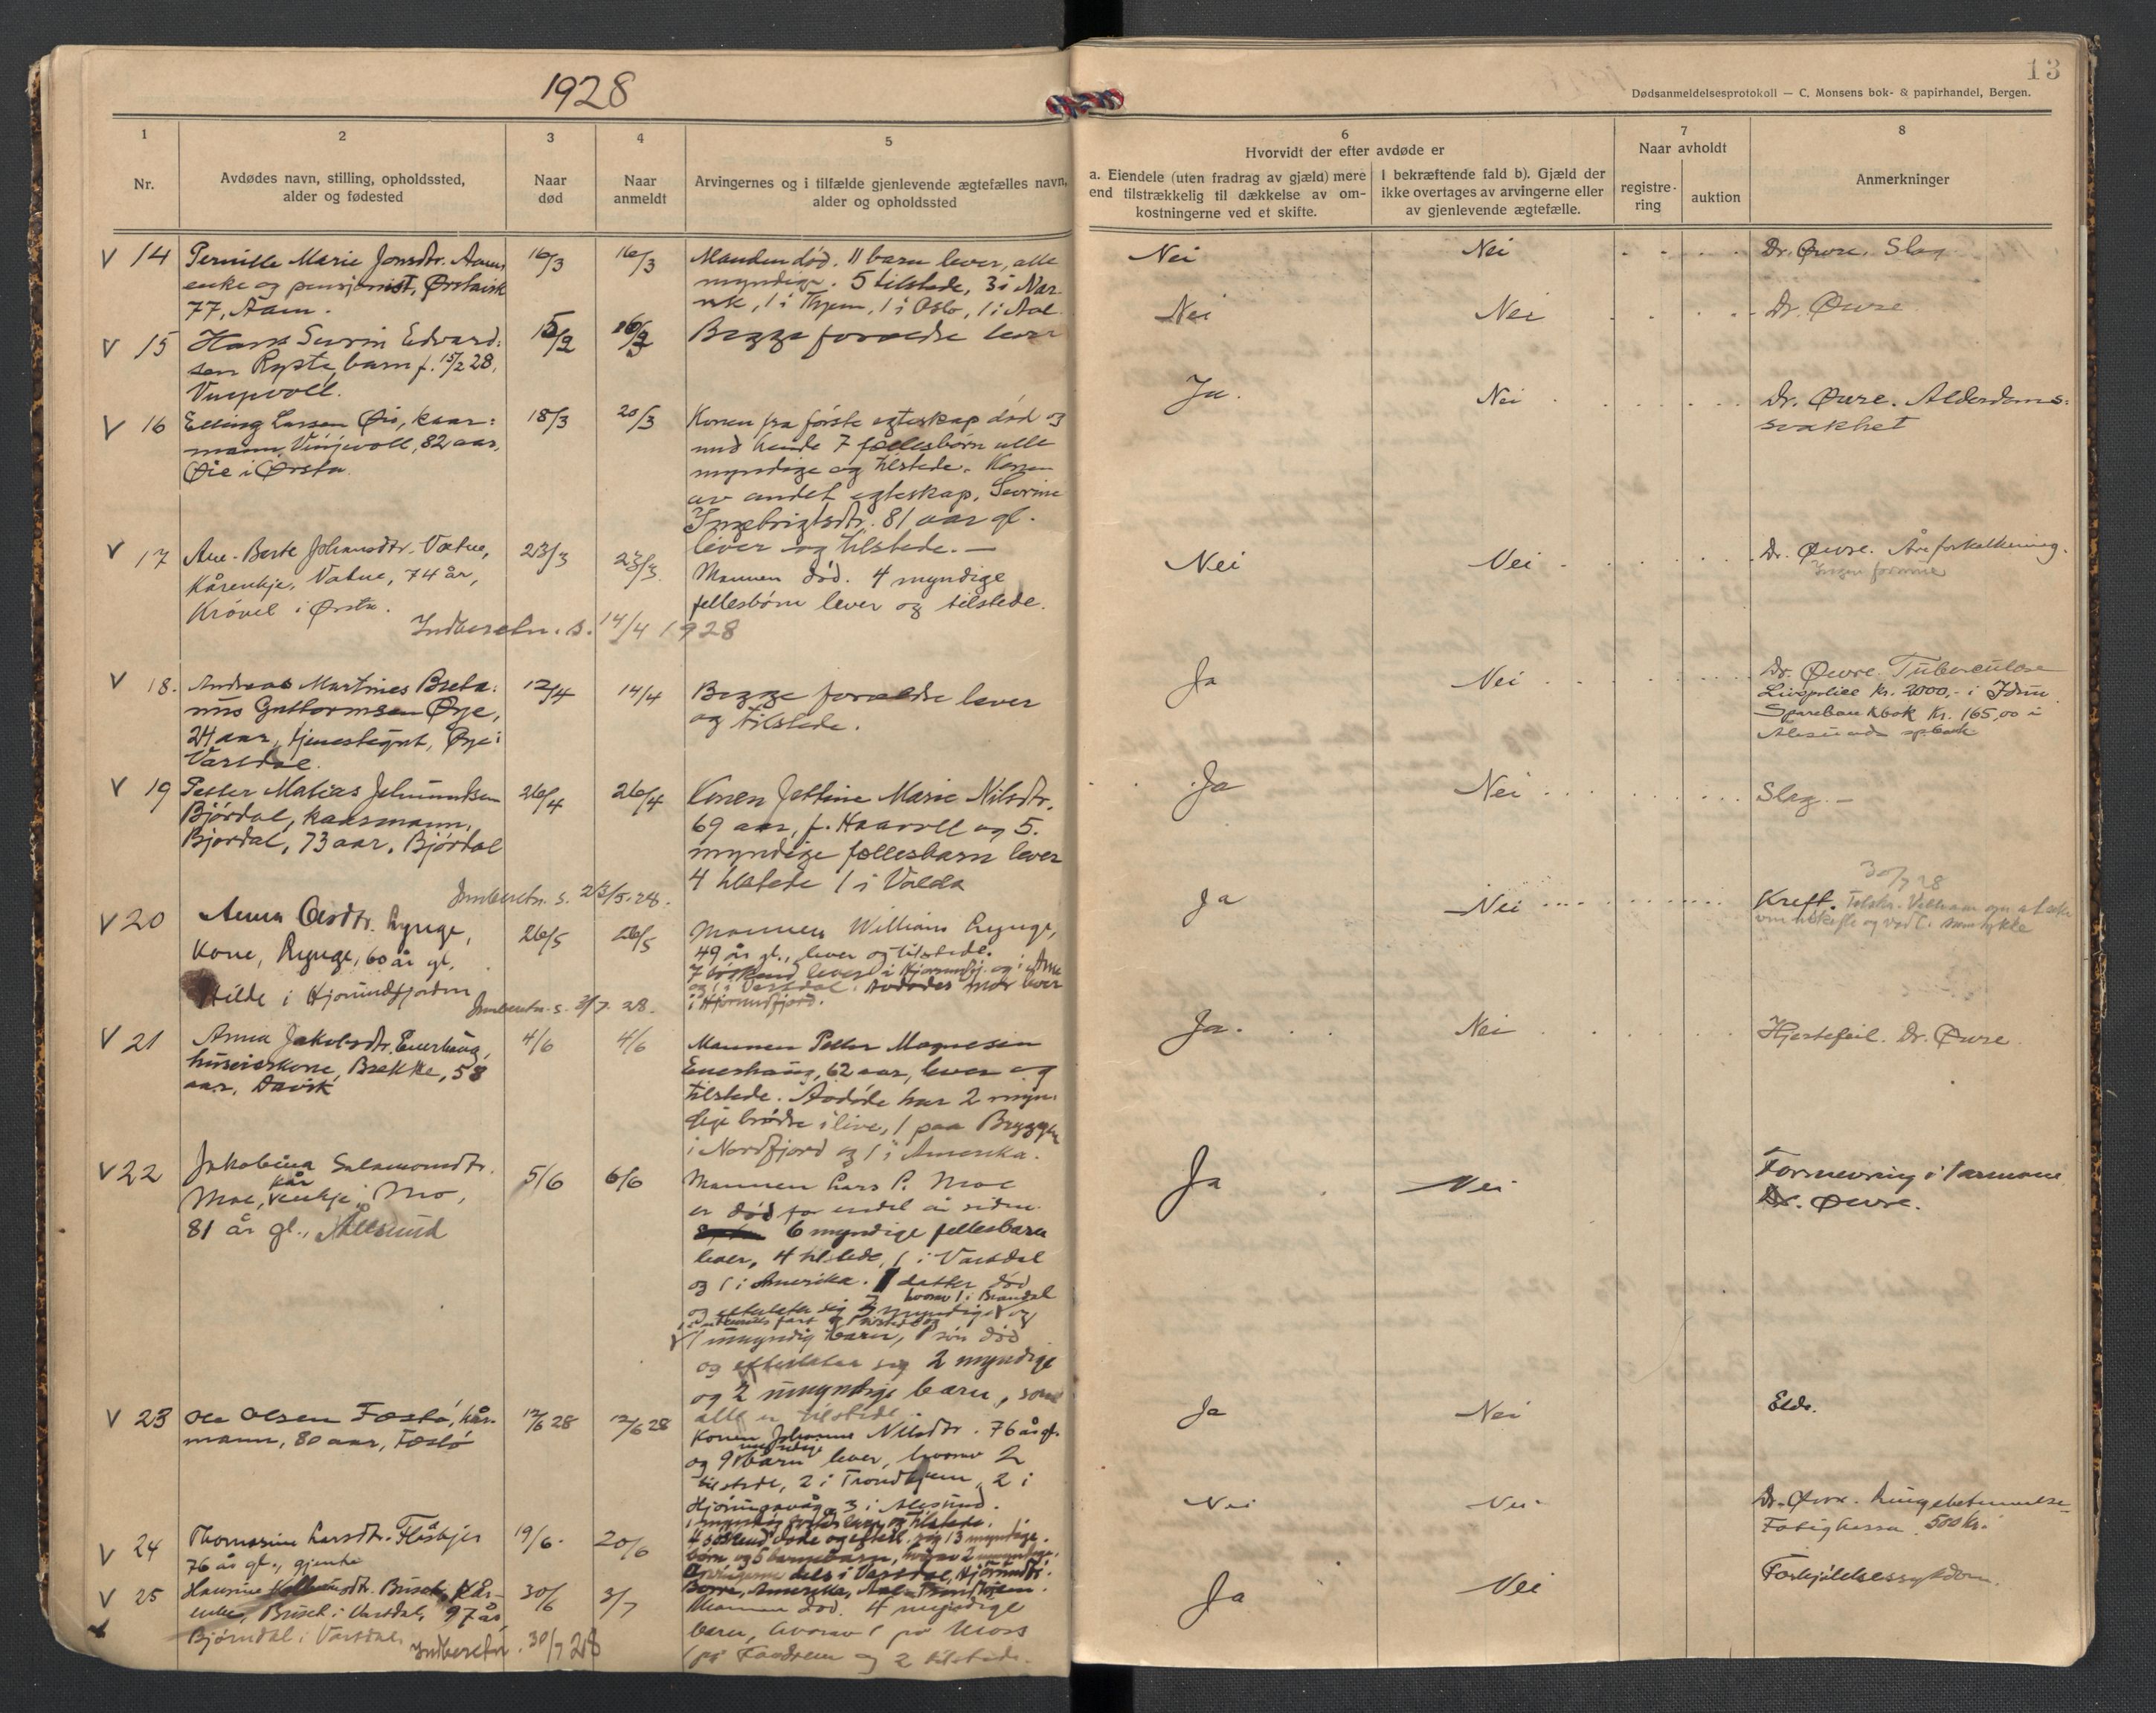 1928
13
Dødsanmeldelsesprotokoll — C. Monsens bok- & papirhandel, Bergen.
1
Nr.
2
Avdødes navn, stilling, opholdssted,
alder og fødested
3
Naar
død
4
Naar
anmeldt
5
Arvingernes og i tilfælde gjenlevende ægtefælles navn,
alder og opholdssted
6
Hvorvidt der efter avdøde er
a. Eiendele (uten fradrag av gjæld) mere
end tilstrækkelig til dækkelse av om-
kostningerne ved et skifte.
I bekræftende fald b). Gjæld der
ikke overtages av arvingerne eller
av gjenlevende ægtefælle.
7
Naar avholdt
registre-
ring
auktion
8
Anmerkninger
V 14
Pernille Marie Jonsdtr. Aams
enke og pensjonist, Ørstavik
77, Aam.
16/3
16/3
Manden død. 11 barn lever, alle
myndige. 5 tilstede, 3 i Nar-
vik, 1 i Thjem, 1 i Oslo, 1 i Aal.
Nei
Nei
Dr. Øvre. Slag
V 15
Hans Severin Edvard:
sen Ryste, barn f. 15/2 28,
15/2
Begge forældre lever
Nei
Nei
Dr. Øvre
V 16
Elling Larsen Øie, kaar:
mann, Vinjevoll, 82 aar,
Øie i Ørsta
18/3
20/3
Konen fra første egteskap død og
med hende 7 fællesbörn alle
myndige og tilstede. Konen
av andet egteskap, Sevrine
Ingebrigtsdtr. 81 aar gl.
lever og tilstede. —
Ja.
Nei
Dr. Øvre. Alderdoms:
svakhet
V 17
Ane-Berte Johansdtr. Vatne,
Kårenkje, Vatne, 74 år,
Krövel i Ørsta.
23/3
23/3
Mannen död. 4 myndige
fellesbörn lever og tilstede.
Nei
Nei
Dr. Øvre. Åreforkalkning.
Ingen formue
Indberetn. s. 14/4 1928
V 18.
Andreas Martines Breta:
nus Guttormsen Øye,
24 aar, tjenestegut, Øye i
Vartdal.
12/4
14/4
Begge forældre lever
og tilstede.
Ja
Nei
Dr. Øvre. Tuberculose
Livspolice Kr. 2000,- i Idun
Sparebankbok Kr. 165,00 i
Alesunds spbank
V 19
Petter Matias Johnundsen
Björdal, kaarmann,
Björdal, 73 aar, Björdal
26/4
26/4
Konen Jettine Marie Nilsdtr.
69 aar, f. Haavoll og 5.
myndige fællesbarn lever
4 tilstede 1 i Volda
Ja
Nei
Slag. —
Innberetn. s. 23/5.28.
V 20
Anna Olsdtr. Rynge,
Kone, Rynge, 60 år gl.
Stilde i Hjørundfjorden
26/5
26/5
Mannen William Rynge,
49 år gl., lever og tilstede.
7 söskend lever i Hjørundfj. og i Ame
og 1 i Vartdal. Avdødes mor lever
i Hjørundfjord.
Ja
Nei
30/7 28
Kreft.
Innberetn. s. 3/7. 28.
V 21
Anna Jakobsdtr. Enerhaug,
huseierkone, Brekke, 58
aar, Davik
4/6
4/6
Mannen Petter Magnesen
Enerhaug, 62 aar, lever og
tilstede. Avdöde har 2 myn-
dige brödre i live, 1 paa Bryggen
i Nordfjord og 1 i Amerika.
Ja.
Nei
Hjertefeil. Dr. Øvre.
V 22
Jakobina Salamonsdtr.
Moe, kårenkje, Mo,
81 år gl., Ålesund
5/6
6/6
Mannen Lars P. Moe
er död for endel år siden.
6 myndige fellesbarn
lever, 4 tilstede, 1 i Vartdal
og 1 i Amerika. 1 datter död
og efterlater sig 3 myndige og
hvorav 1 i Brandal
1 umyndig barn, 1 sön död
og efterlater sig 2 myndige
og 2 umyndige barn, som
alle er tilstede.
Ja
Nei
Forsnevring i tarmene
Dr. Øvre.
V 23
Ole Olsen Festö, kår-
mann, 80 aar, Festö
12/6 28
12/6 28
Konen Johanne Nilsdtr. 76 år gl.
og 9 myndige barn lever, hvorav 2
tilstede, 2 i Trondhjem, 2 i
Hjörungavåg, 3 i Alesund.
Ja
Nei
Elde.
V 24
Thomasine Larsdtr. Flåskjer
76 år gl., gjente
19/6.
20/6
4 söskend döde og efterl. sig 13 myndige
börn og 5 barnebarn, hvorav 2 umyndige.
Arvingerne dels i Vartdal, Hjörundfj.
Borre, Amerika, Aal. Trondhjem.
Nei
Nei
Dr. Øvre. Lungebetennelse
Fattigkassa 500 kr.
V 25
enke, Buset i Vartdal, 97 år
Bjørndal i Vartdal
30/6
3/7
Mannen död. 4 myndige
barn, hvorav 1 på Moss
1 på og 2 tilstede.
Ja
Nei
Forkjölelsessykdom.
Indberetn. 30/7 28